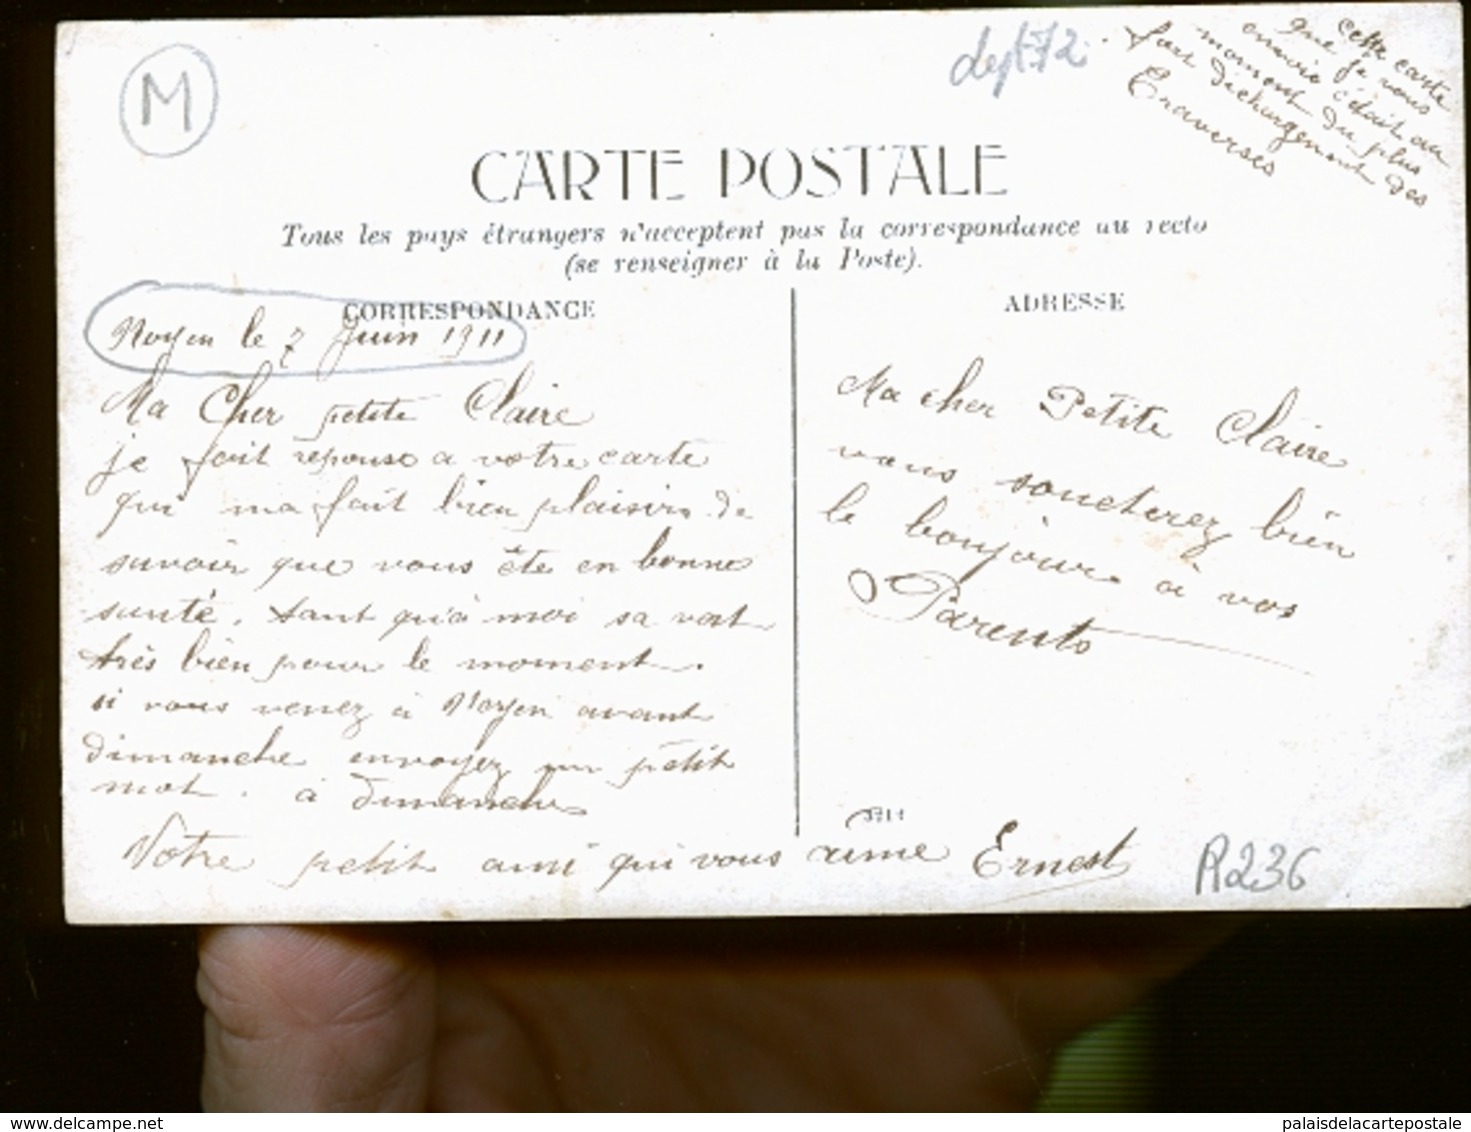 M
dept 72
Cette carte
que je vous
envoie c'était au
moment du plus
fort déchargement des
Traverses
CARTE POSTALE
Tous les pays étrangers n'acceptent pas la correspondance au recto
(se renseigner à la Poste).
CORRESPONDANCE
Noyen le 7 Juin 1911
Ma Cher petite Claire
je fait reponse a votre carte
qui ma fait bien plaisir de
savoir que vous ête en bonne
santé. tant qu'à moi sa vat
très bien pour le moment.
si vous venez à Noyen avant
dimanche envoyez un petit
mot. à dimanche
Votre petit ami qui vous aime Ernest
ADRESSE
Ma cher Petite Claire
vous souterez bien
le bonjour à vos
Parents
R236
delcampe.net
palaisdelacartepostale